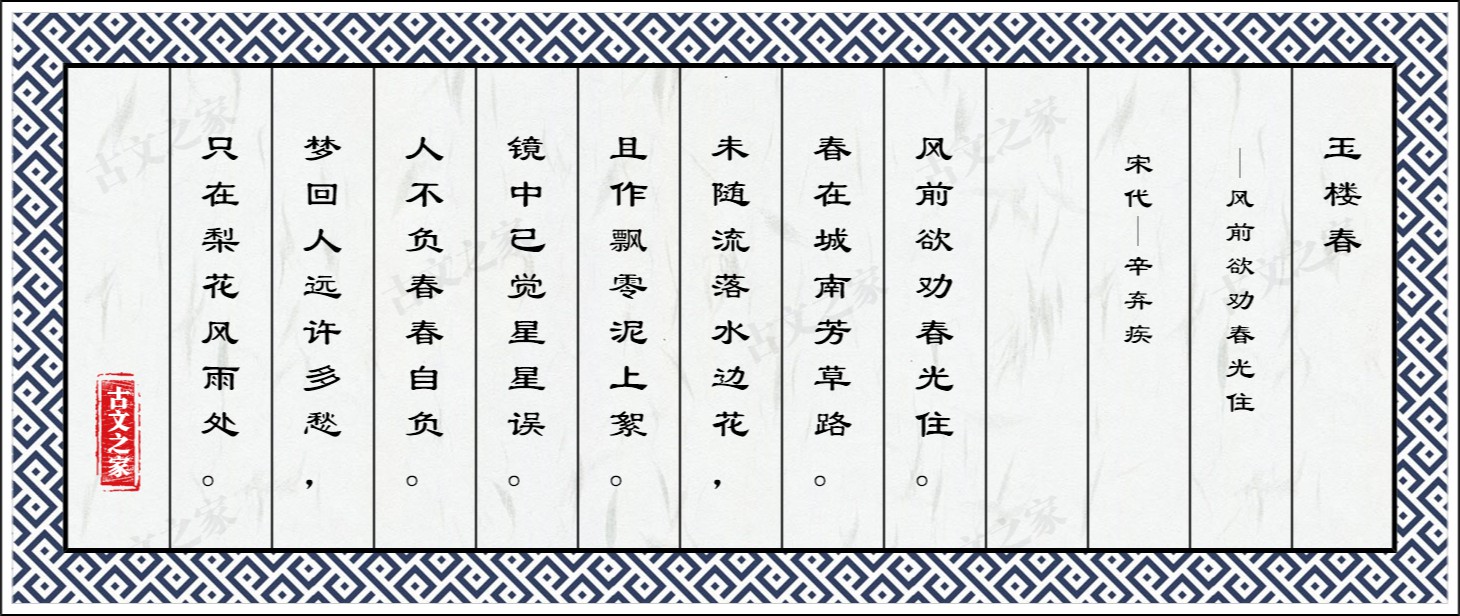 玉楼春
—风前欲劝春光住
宋代—辛弃疾
风前欲劝春光住。
春在城南芳草路。
未随流落水边花，
且作飘零泥上絮。
镜中已觉星星误。
人不负春春自负。
梦回人远许多愁，
只在梨花风雨处。
古文之家